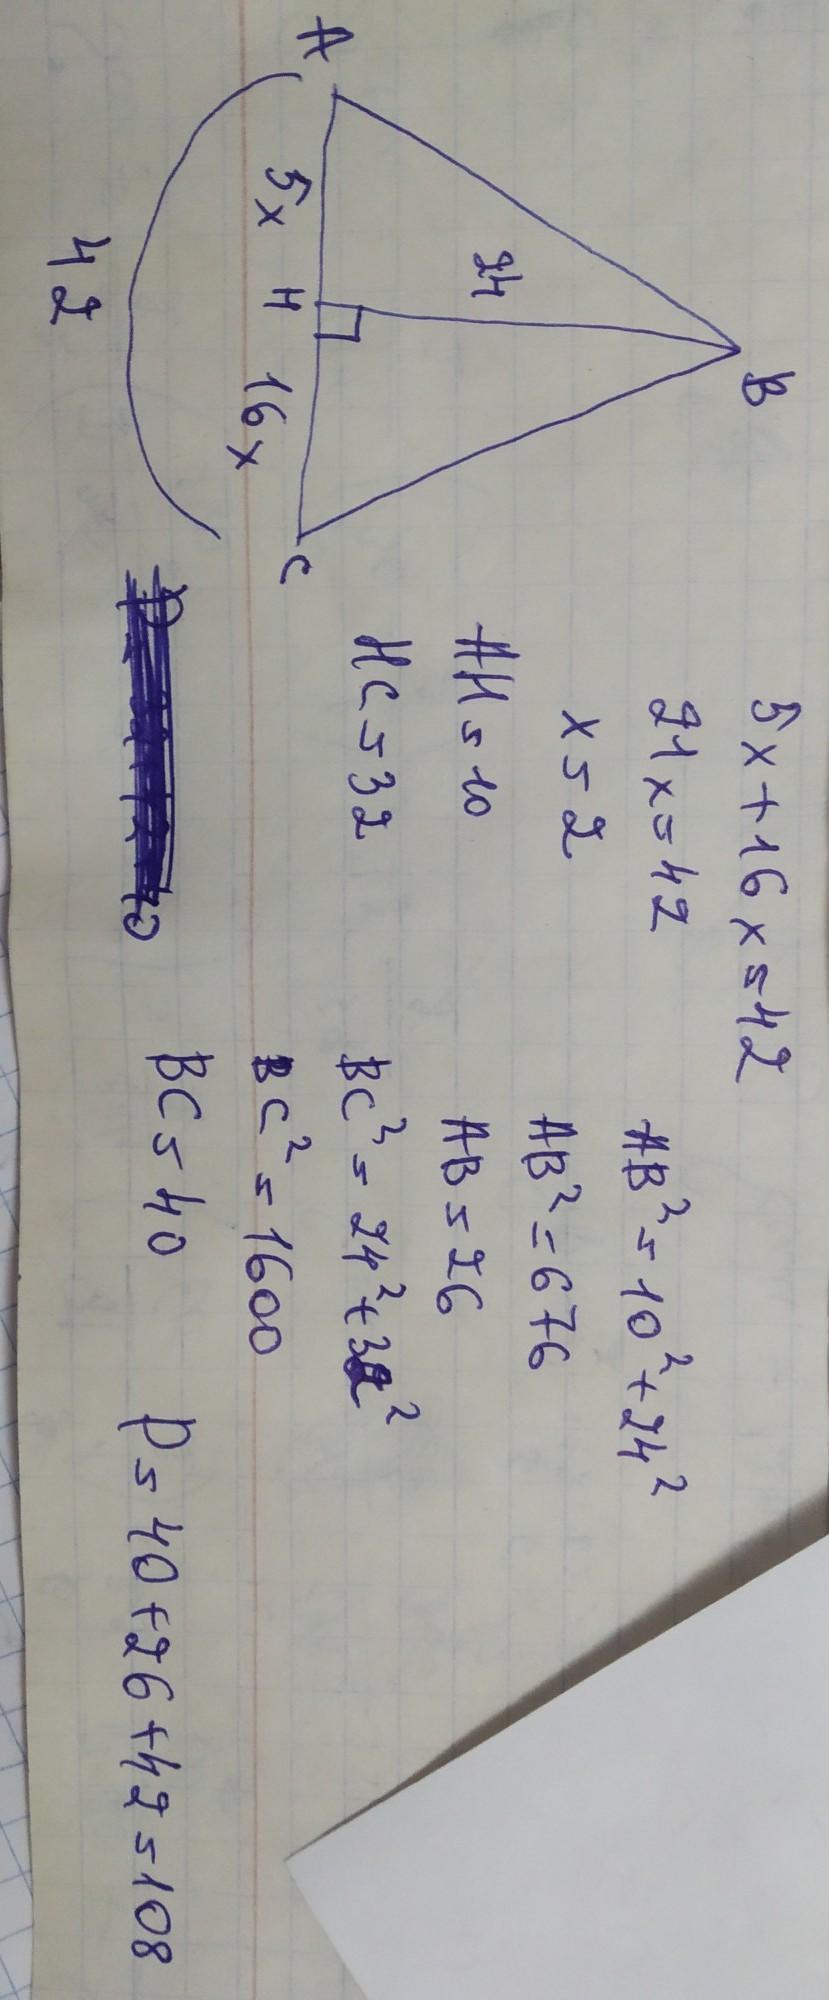 B
24
A
5x
H
16x
C
42
5x+16x=42
21x=42
x=2
AH=10
HC=32
AB²=10²+24²
AB²=676
AB=26
BC²=24²+32²
BC²=1600
BC=40
P=40+26+42=108